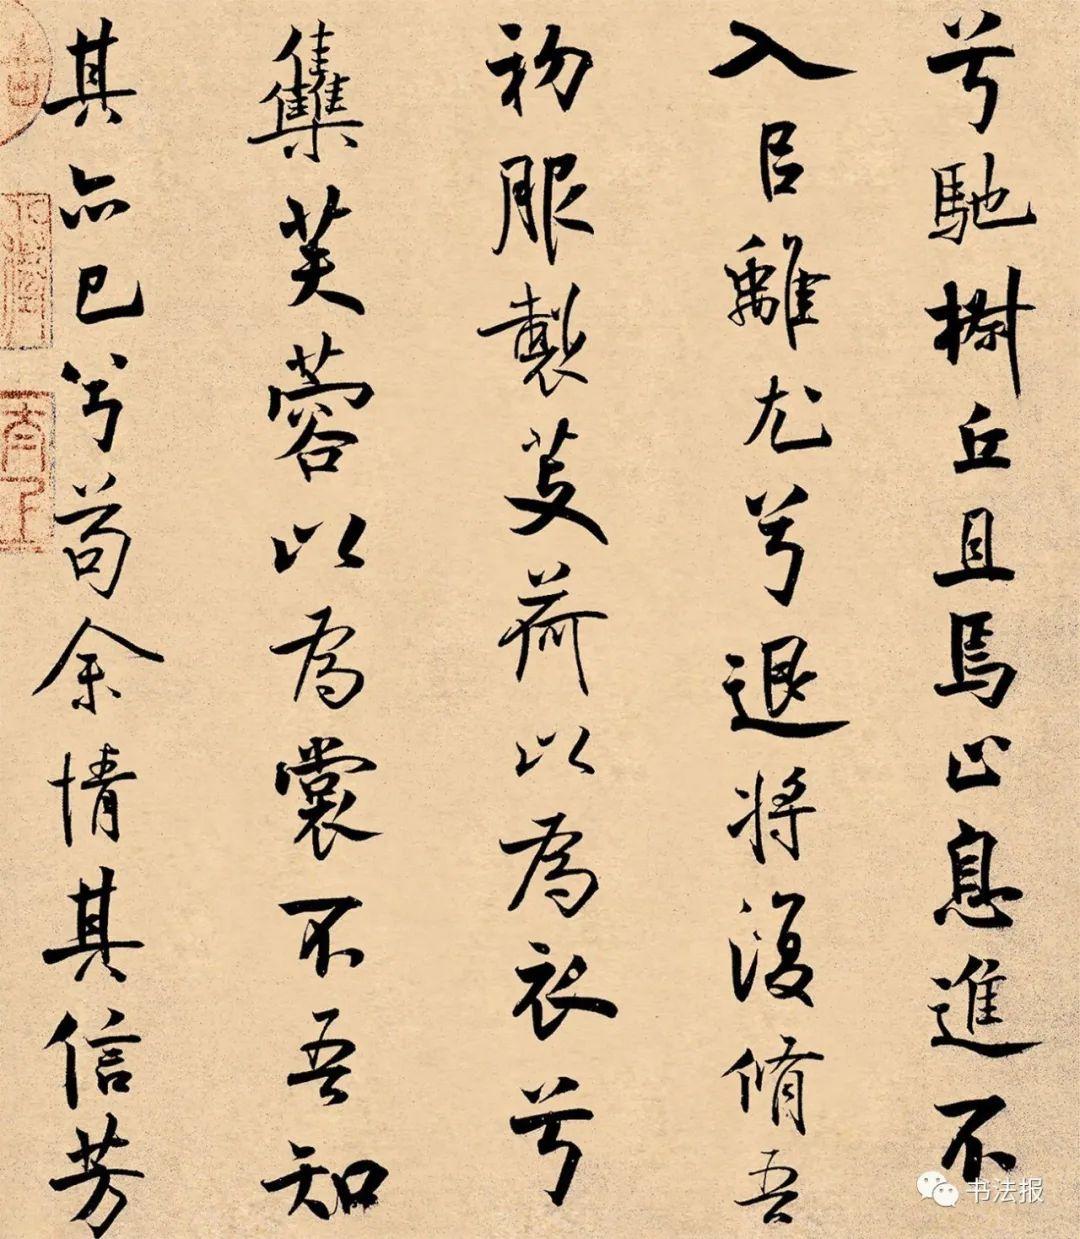 兮馳椒丘且焉止息進不
入以離尤兮退將復脩吾
初服製芰荷以為衣兮
雧芙蓉以為裳不吾知
其亦已兮苟余情其信芳
书法报